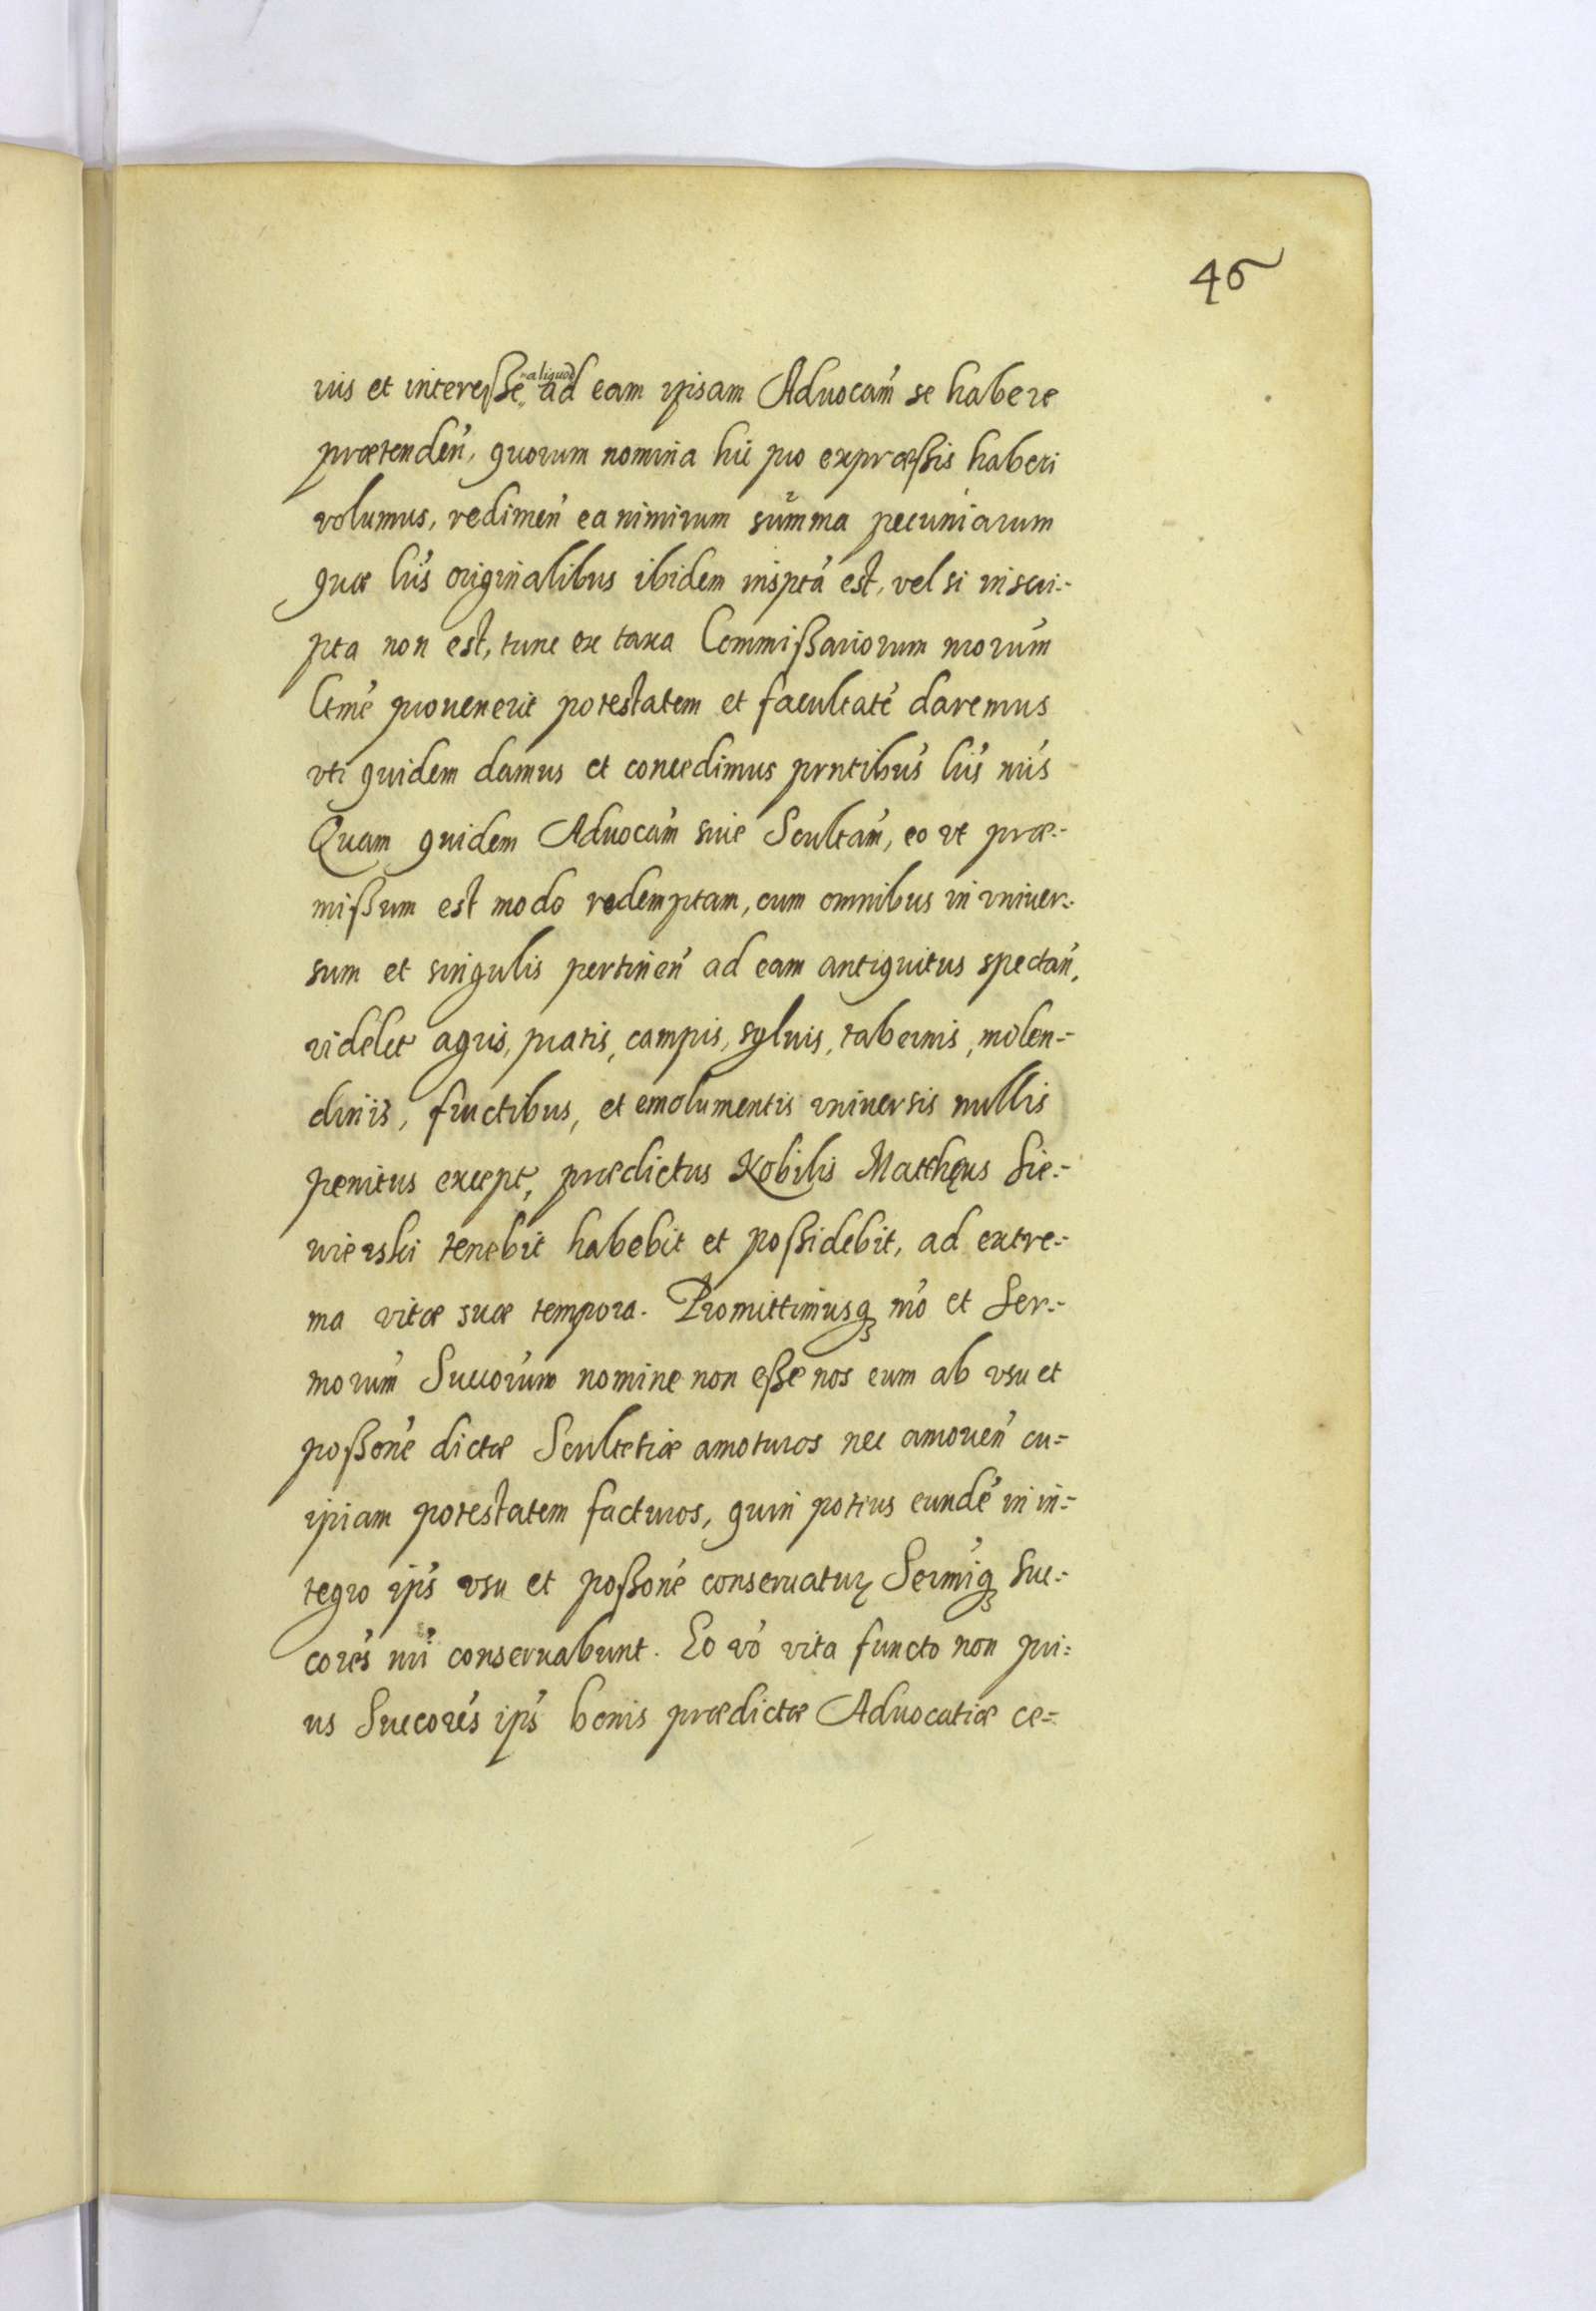 46
ius et interesse aliquod ad eam ipsam Aduocam̃ se habere
prætendeń, quorum nomina hic pro expræssis haberi
volumus, redimeń ea nimirum summa pecuniarum
quæ lŕis originalibus ibidem inspta est, vel si inscri-
pta non est, tunc ex taxa Commissariorum nrorum
ltme prouenerit potestatem et facultaté daremus
vti quidem damus et concedimus prntibus lris nris
Quam quidem Aduocam̃ siue Scultam̃, eo vt præ-
missum est modo redemptam, cum omnibus in vniuer-
sum et singulis pertineń ad eam antiquitus spectań,
videlet agris, pratis, campis, syluis, tabernis, molen-
dinis, fructibus, et emolumentis vniuersis nullis
penitus except, prædictus Nobilis Matthęus Sie-
wierski tenebit habebit et possidebit, ad extre-
ma vitæ suæ tempora. Promittimusq́ nro et Ser-
morum Succorum nomine non esse nos eum ab vsu et
possone dictæ Scultetiæ amoturos nec amoueń cu-
ipiam potestatem facturos, quin potius eundé in in-
tegro ips vsu et possone conseruatur Sermiq́ suc-
cores nri conseruabunt. Eo vo vita functo non pri-
us Succores ips bonis prædictæ Aduocatiæ ce-